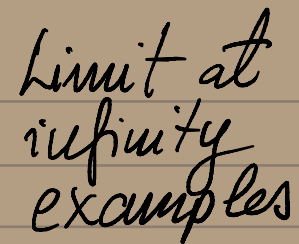 Limit at
infinity
examples